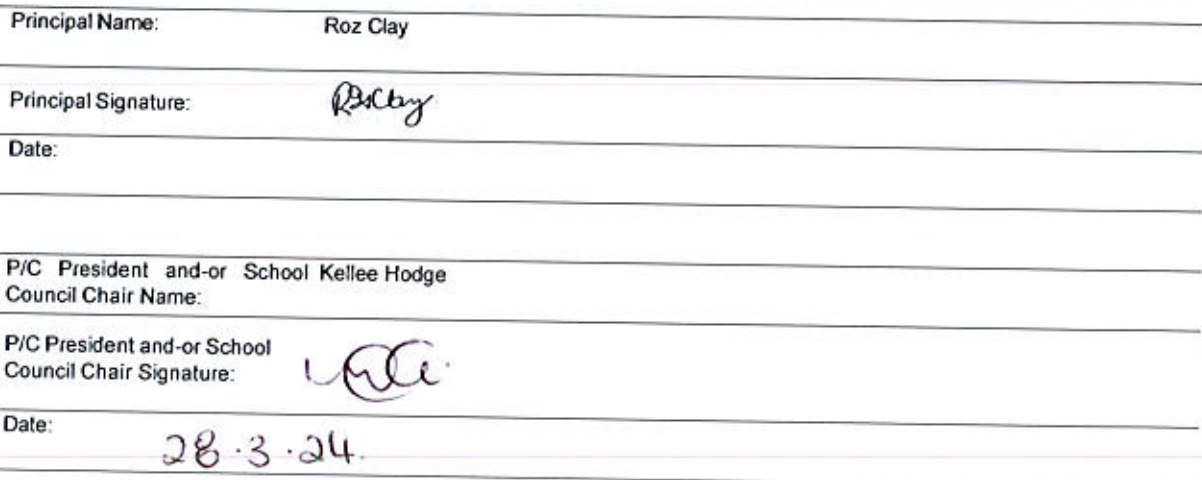 Principal Name: Roz Clay
Principal Signature: RClay
Date:
P/C President and-or School Kellee Hodge
Council Chair Name:
P/C President and-or School
Council Chair Signature:
Date:
28.3.24.